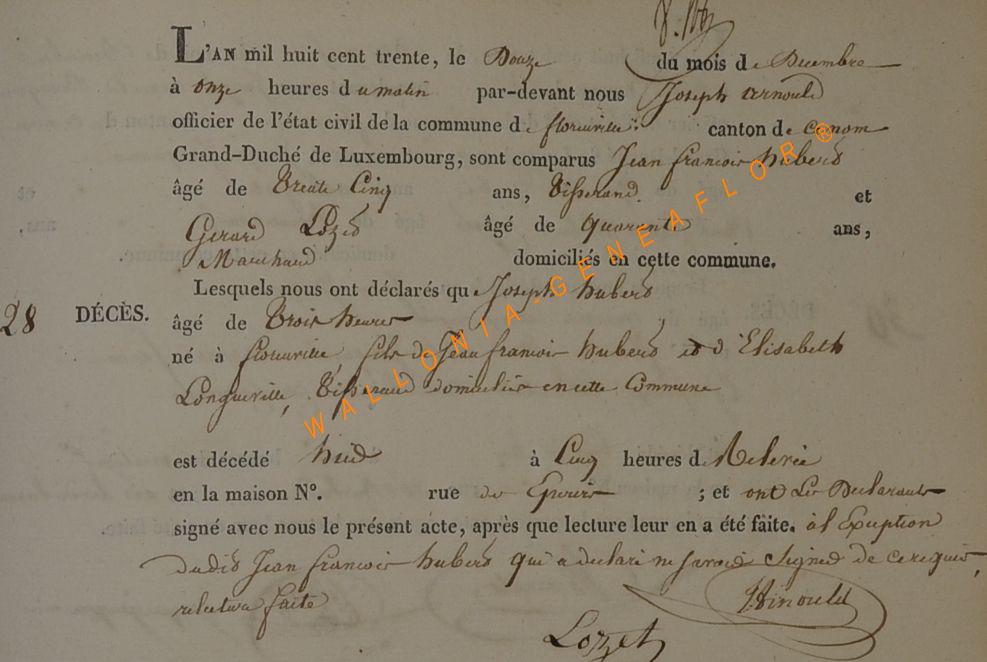 L'AN mil huit cent trente, le Douze du mois de Decembre
à onze heures du matin par-devant nous Joseph Arnould
officier de l'état civil de la commune de florenville canton de
Grand-Duché de Luxembourg, sont comparus Jean francois hubert
âgé de trente Cinq ans, tisserand et
Gerard Lozet âgé de quarante ans,
Marchand domiciliés en cette commune.
Lesquels nous ont déclarés que Joseph hubert
28 DÉCÈS. âgé de trois heures
né à florenville fils de Jean francois hubert et d'Elisabeth
Longueville, tisserand domiciliés en cette Commune
est décédé hier à Cinq heures de Relevée
en la maison N°. rue de ; et ont Les Declarants
signé avec nous le présent acte, après que lecture leur en a été faite. à l'Exception
dudit Jean francois hubert qui a declaré ne savoir signer de ce requis,
relecture faite
Arnould
Lozet
WALLONIA-GENEAFLOR ®